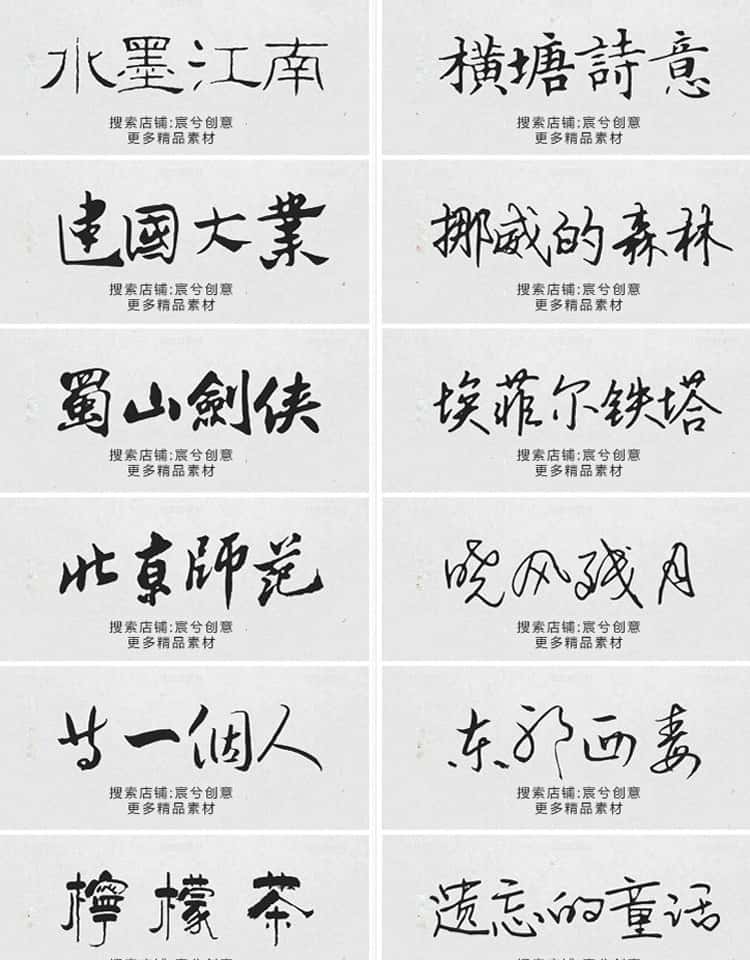 水墨江南
搜索店铺:宸兮创意
更多精品素材
橫塘詩意
搜索店铺:宸兮创意
更多精品素材
建國大業
搜索店铺:宸兮创意
更多精品素材
挪威的森林
搜索店铺:宸兮创意
更多精品素材
蜀山劍侠
搜索店铺:宸兮创意
更多精品素材
埃菲尔铁塔
搜索店铺:宸兮创意
更多精品素材
北京師范
搜索店铺:宸兮创意
更多精品素材
晓风残月
搜索店铺:宸兮创意
更多精品素材
等一個人
搜索店铺:宸兮创意
更多精品素材
东邪西毒
搜索店铺:宸兮创意
更多精品素材
檸檬茶
搜索店铺:宸兮创意
遗忘的童话
搜索店铺:宸兮创意